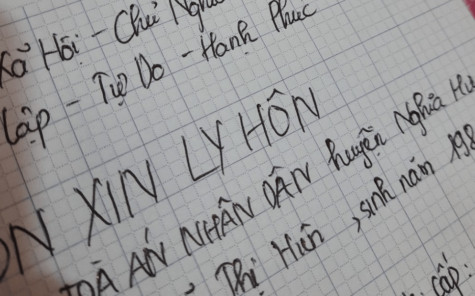 Xã Hội - Chủ Nghĩa
Lập - Tự Do - Hạnh Phúc
ĐƠN XIN LY HÔN
TOÀ ÁN NHÂN DÂN huyện Nghĩa Hư
Thị Hiền, sinh năm 198
cấp.